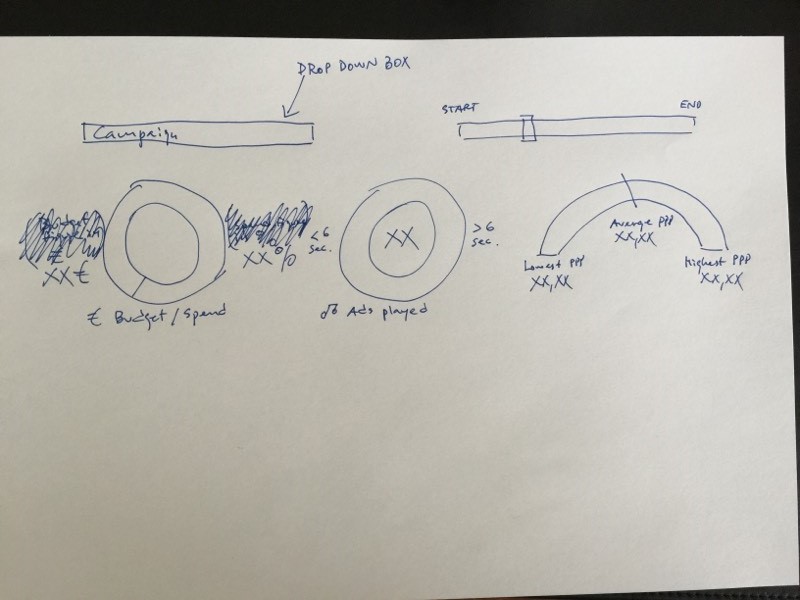 DROP DOWN BOX
Campaign
START
END
XX €
XX %
€ Budget / Spend
<6
sec.
XX
>6
sec.
Ads played
Average PPP
XX,XX
Lowest PPP
XX,XX
Highest PPP
XX,XX